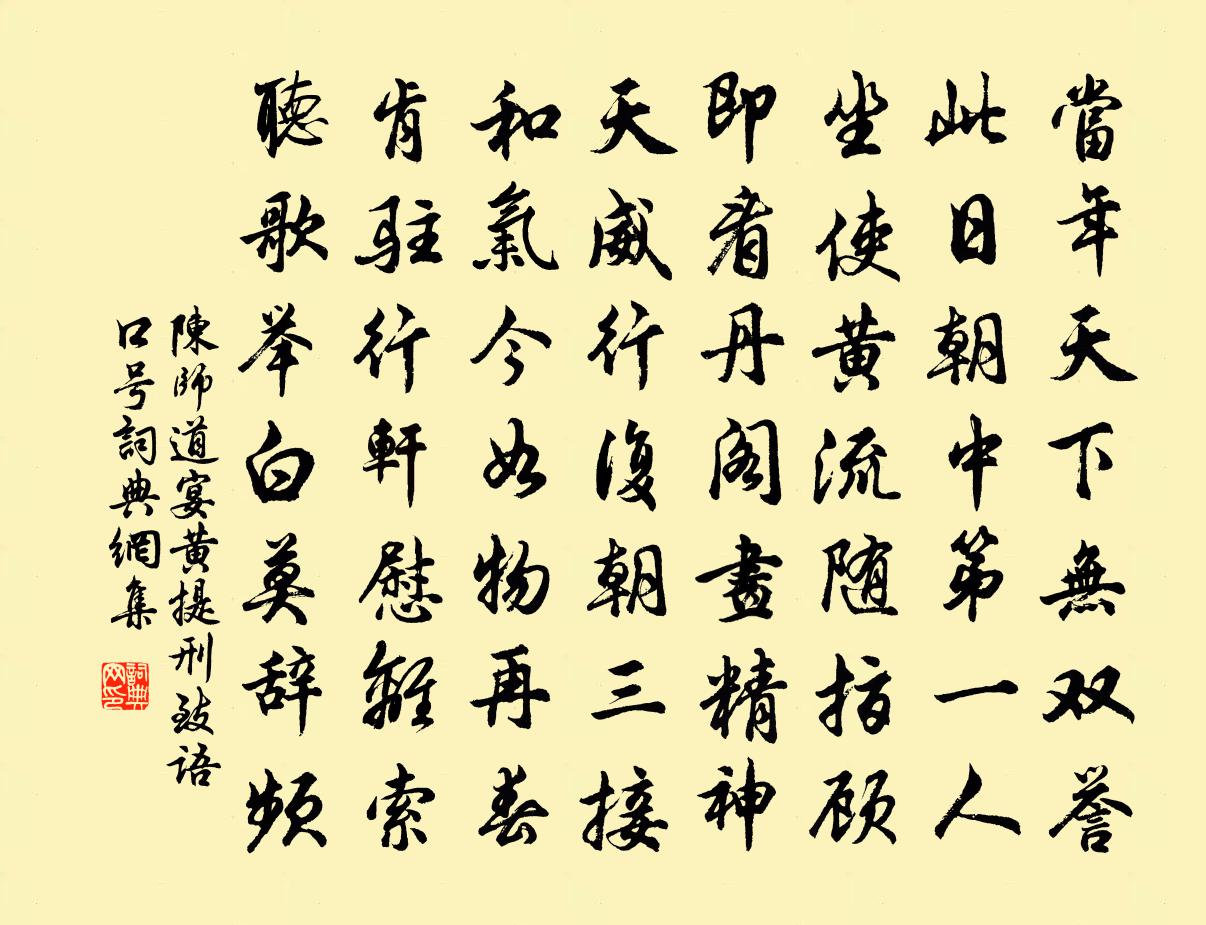 當年天下無双誉
此日朝中第一人
坐使黄流随指顾
即看丹阁畫精神
天威行復朝三接
和氣今如物再春
肯駐行軒慰離索
聽歌举白莫辞频
陳師道宴黄提刑致语
口号詞典網集
詞典网印